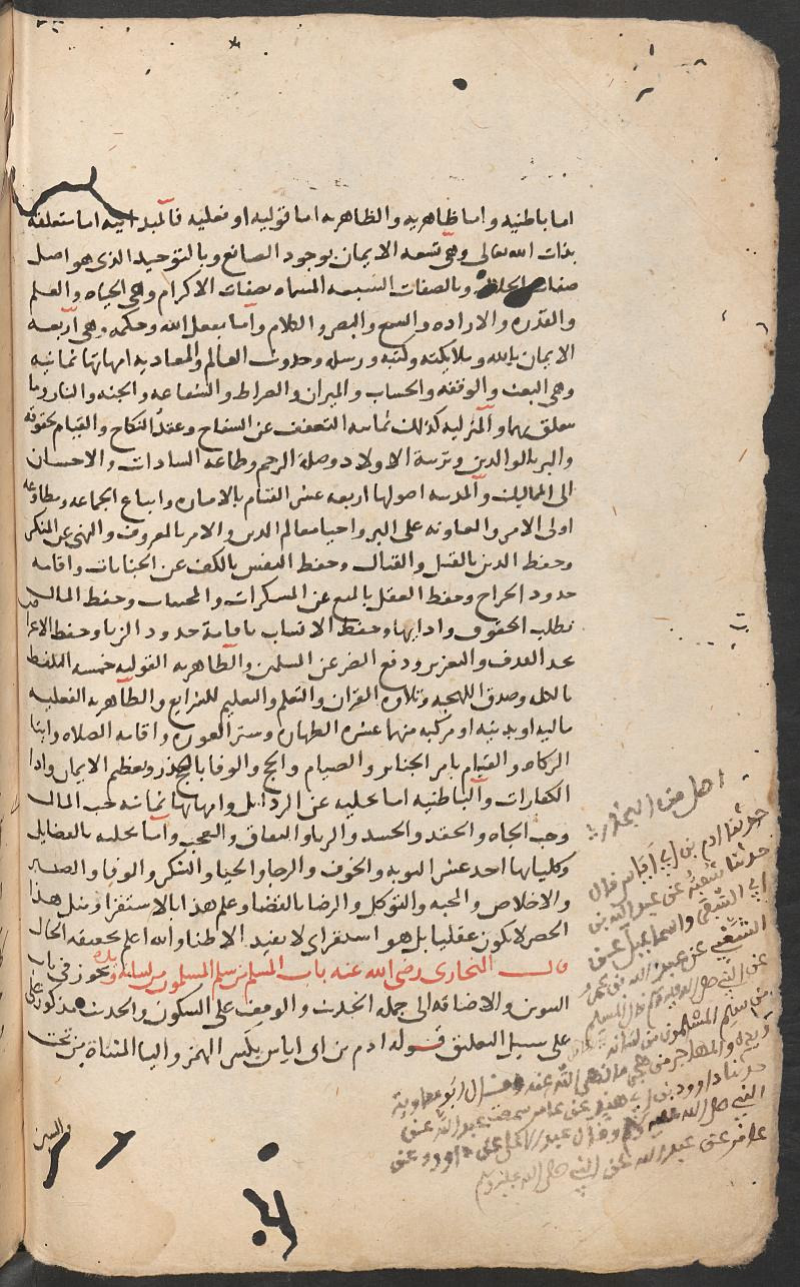 اما باطنيه واما ظاهريه والظاهريه اما قوليه او فعليه فالمبدأيه اما متعلقه
بذات الله تعالى وهي شعبه الايمان بوجود الصانع وبالتوحيد الذي هو اصل
صفات الجلال وبالصفات السبعه المسماه بصفات الاكرام وهي الحياه والعلم
والقدره والاراده والسمع والبصر والكلام واما بفعل الله وحكمه وهي اربعه
الايمان بالله وملايكته وكتبه ورسله وحدوث العالم والمعاديه امهاتها ثمانيه
وهي البعث والوقفه والحساب والميزان والصراط والشفاعه والجنه والنار وما
يتعلق بهما والمنزليه كذلك ثمانيه التعفف عن السفاح وعقد النكاح والقيام بحقوقه
والبر بالوالدين وتربية الاولاد وصلة الرحم وطاعه السادات والاحسان
الى المماليك والمدنيه اصولها اربعه عشر القيام بالاماره واتباع الجماعه ومطاوعه
اولى الامر والمعاونه على البر واحيا معالم الدين والامر بالمعروف والنهى عن المنكر
وحفظ الدين بالقتل والقتال وحفظ النفس بالكف عن الجنايات واقامه
حدود الجراح وحفظ العقل بالمنع عن المسكرات والمجننات وحفظ المال
بطلب الحقوق وادايها وحفظ الانساب باقامة حدود الزنا وحفظ الاعراض
بحد القذف والتعزير ودفع الضرر عن المسلمين والظاهريه القوليه خمسه التلفظ
بالكلمه وصدق اللهجه وتلاوه القران والتعلم والتعليم للشرايع والظاهريه الفعليه
ماليه او بدنيه او مركبه منهما عشره الطهاره وستر العوره واقامه الصلاه وايتا
الزكاه والقيام بامر الجنايز والصيام والحج والوفا بالنذر وتعظيم الايمان وادا
الكفارات والباطنيه اما تخليه عن الرذايل وامهاتها ثمانيه حب المال
وحب الجاه والحقد والحسد والريا والنفاق والعجب واما تحليه بالفضايل
وكلياتها احد عشر التوبه والخوف والرجا والحيا والشكر والوفا والصبر
والاخلاص والمحبه والتوكل والرضا بالقضا وعلم هذا بالاستقرا ومثل هذا
الحصر لا يكون عقليا بل هو استقراي لا يفيد الا ظنا والله اعلم بحقيقه الحال
قال البخارى رضى الله عنه باب المسلم من سلم المسلمون من لسانه ويده يجوز في باب
التنوين والاضافه الى جمله الحديث والوقف على السكون والحديث مذكور
على سبيل التعليق قوله ادم بن ابى اياس بكسر الهمزه واليا المثناة من تحت
والسين
اصل متن البخاري
حدثنا ادم بن ابي اياس قال
حدثنا شعبة عن عبد الله بن
ابي السفر واسماعيل عن
الشعبي عن عبد الله بن عمرو
عن النبي صلى الله عليه وسلم قال المسلم
من سلم المسلمون من لسانه
ويده والمهاجر من هجر ما نهى الله عنه وقال ابو معاوية
حدثنا داوود بن ابي هند عن عامر سمعت عبد الله عن
النبي صلى الله عليه وسلم وقال عبد الاعلى عن داوود عن
عامر عن عبد الله عن النبي صلى الله عليه وسلم